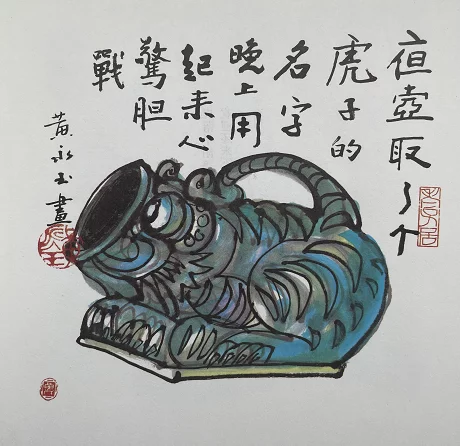 夜壺取了个
虎子的
名字
晚上用
起来心
驚胆
戰
黄永玉畫